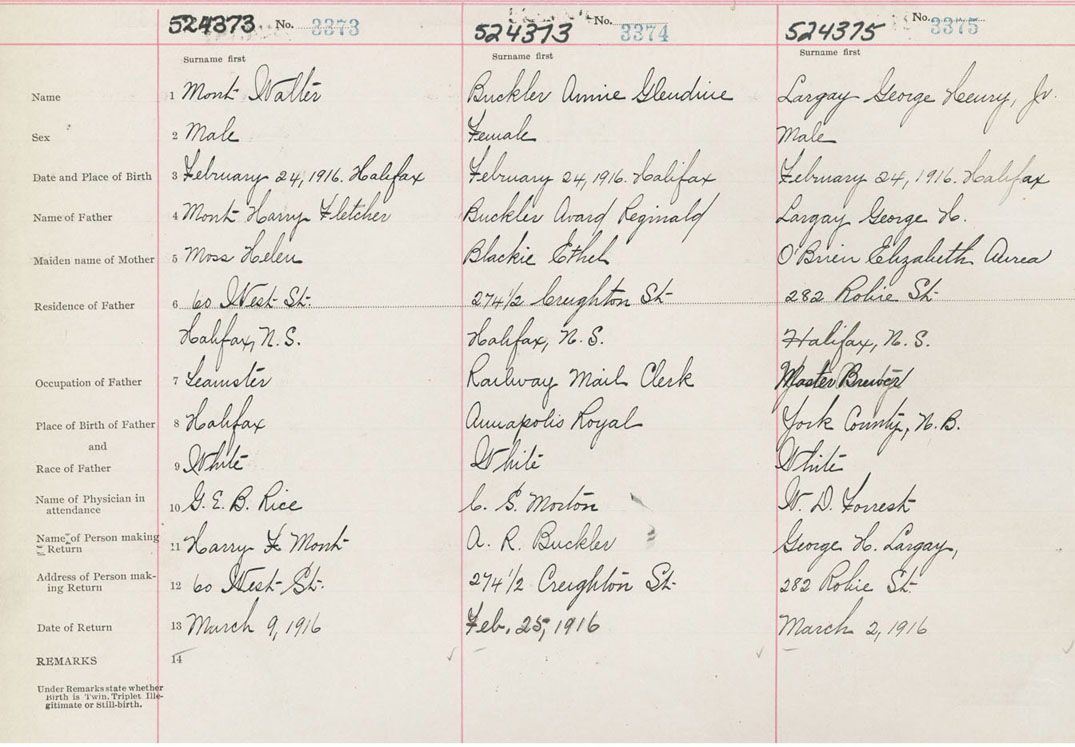 524373 No. 3373 524373 No. 3374 524375 No. 3375
Surname first Surname first Surname first
Name 1 Mont Walter Buckler Annie Glendine Largay George Henry, Jr.
Sex 2 Male Female Male
Date and Place of Birth 3 February 24, 1916. Halifax February 24, 1916. Halifax February 24, 1916. Halifax
Name of Father 4 Mont Harry Fletcher Buckler Avard Reginald Largay George H.
Maiden name of Mother 5 Moss Helen Blackie Ethel O'Brien Elizabeth Aurea
Residence of Father 6 60 West St. 274 1/2 Creighton St. 282 Robie St.
Halifax, N.S. Halifax, N.S. Halifax, N.S.
Occupation of Father 7 Teamster Railway Mail Clerk Master Brewer
Place of Birth of Father 8 Halifax Annapolis Royal York County, N.B.
and
Race of Father 9 White White White
Name of Physician in
attendance 10 G.E.B. Rice C. S. Morton W. D. Forrest
Name of Person making
Return 11 Harry F Mont A. R. Buckler George H. Largay,
Address of Person mak-
ing Return 12 60 West St. 274 1/2 Creighton St. 282 Robie St.
Date of Return 13 March 9, 1916 Feb. 25, 1916 March 2, 1916
REMARKS 14
Under Remarks state whether
Birth is Twin, Triplet Ille-
gitimate or Still-birth.